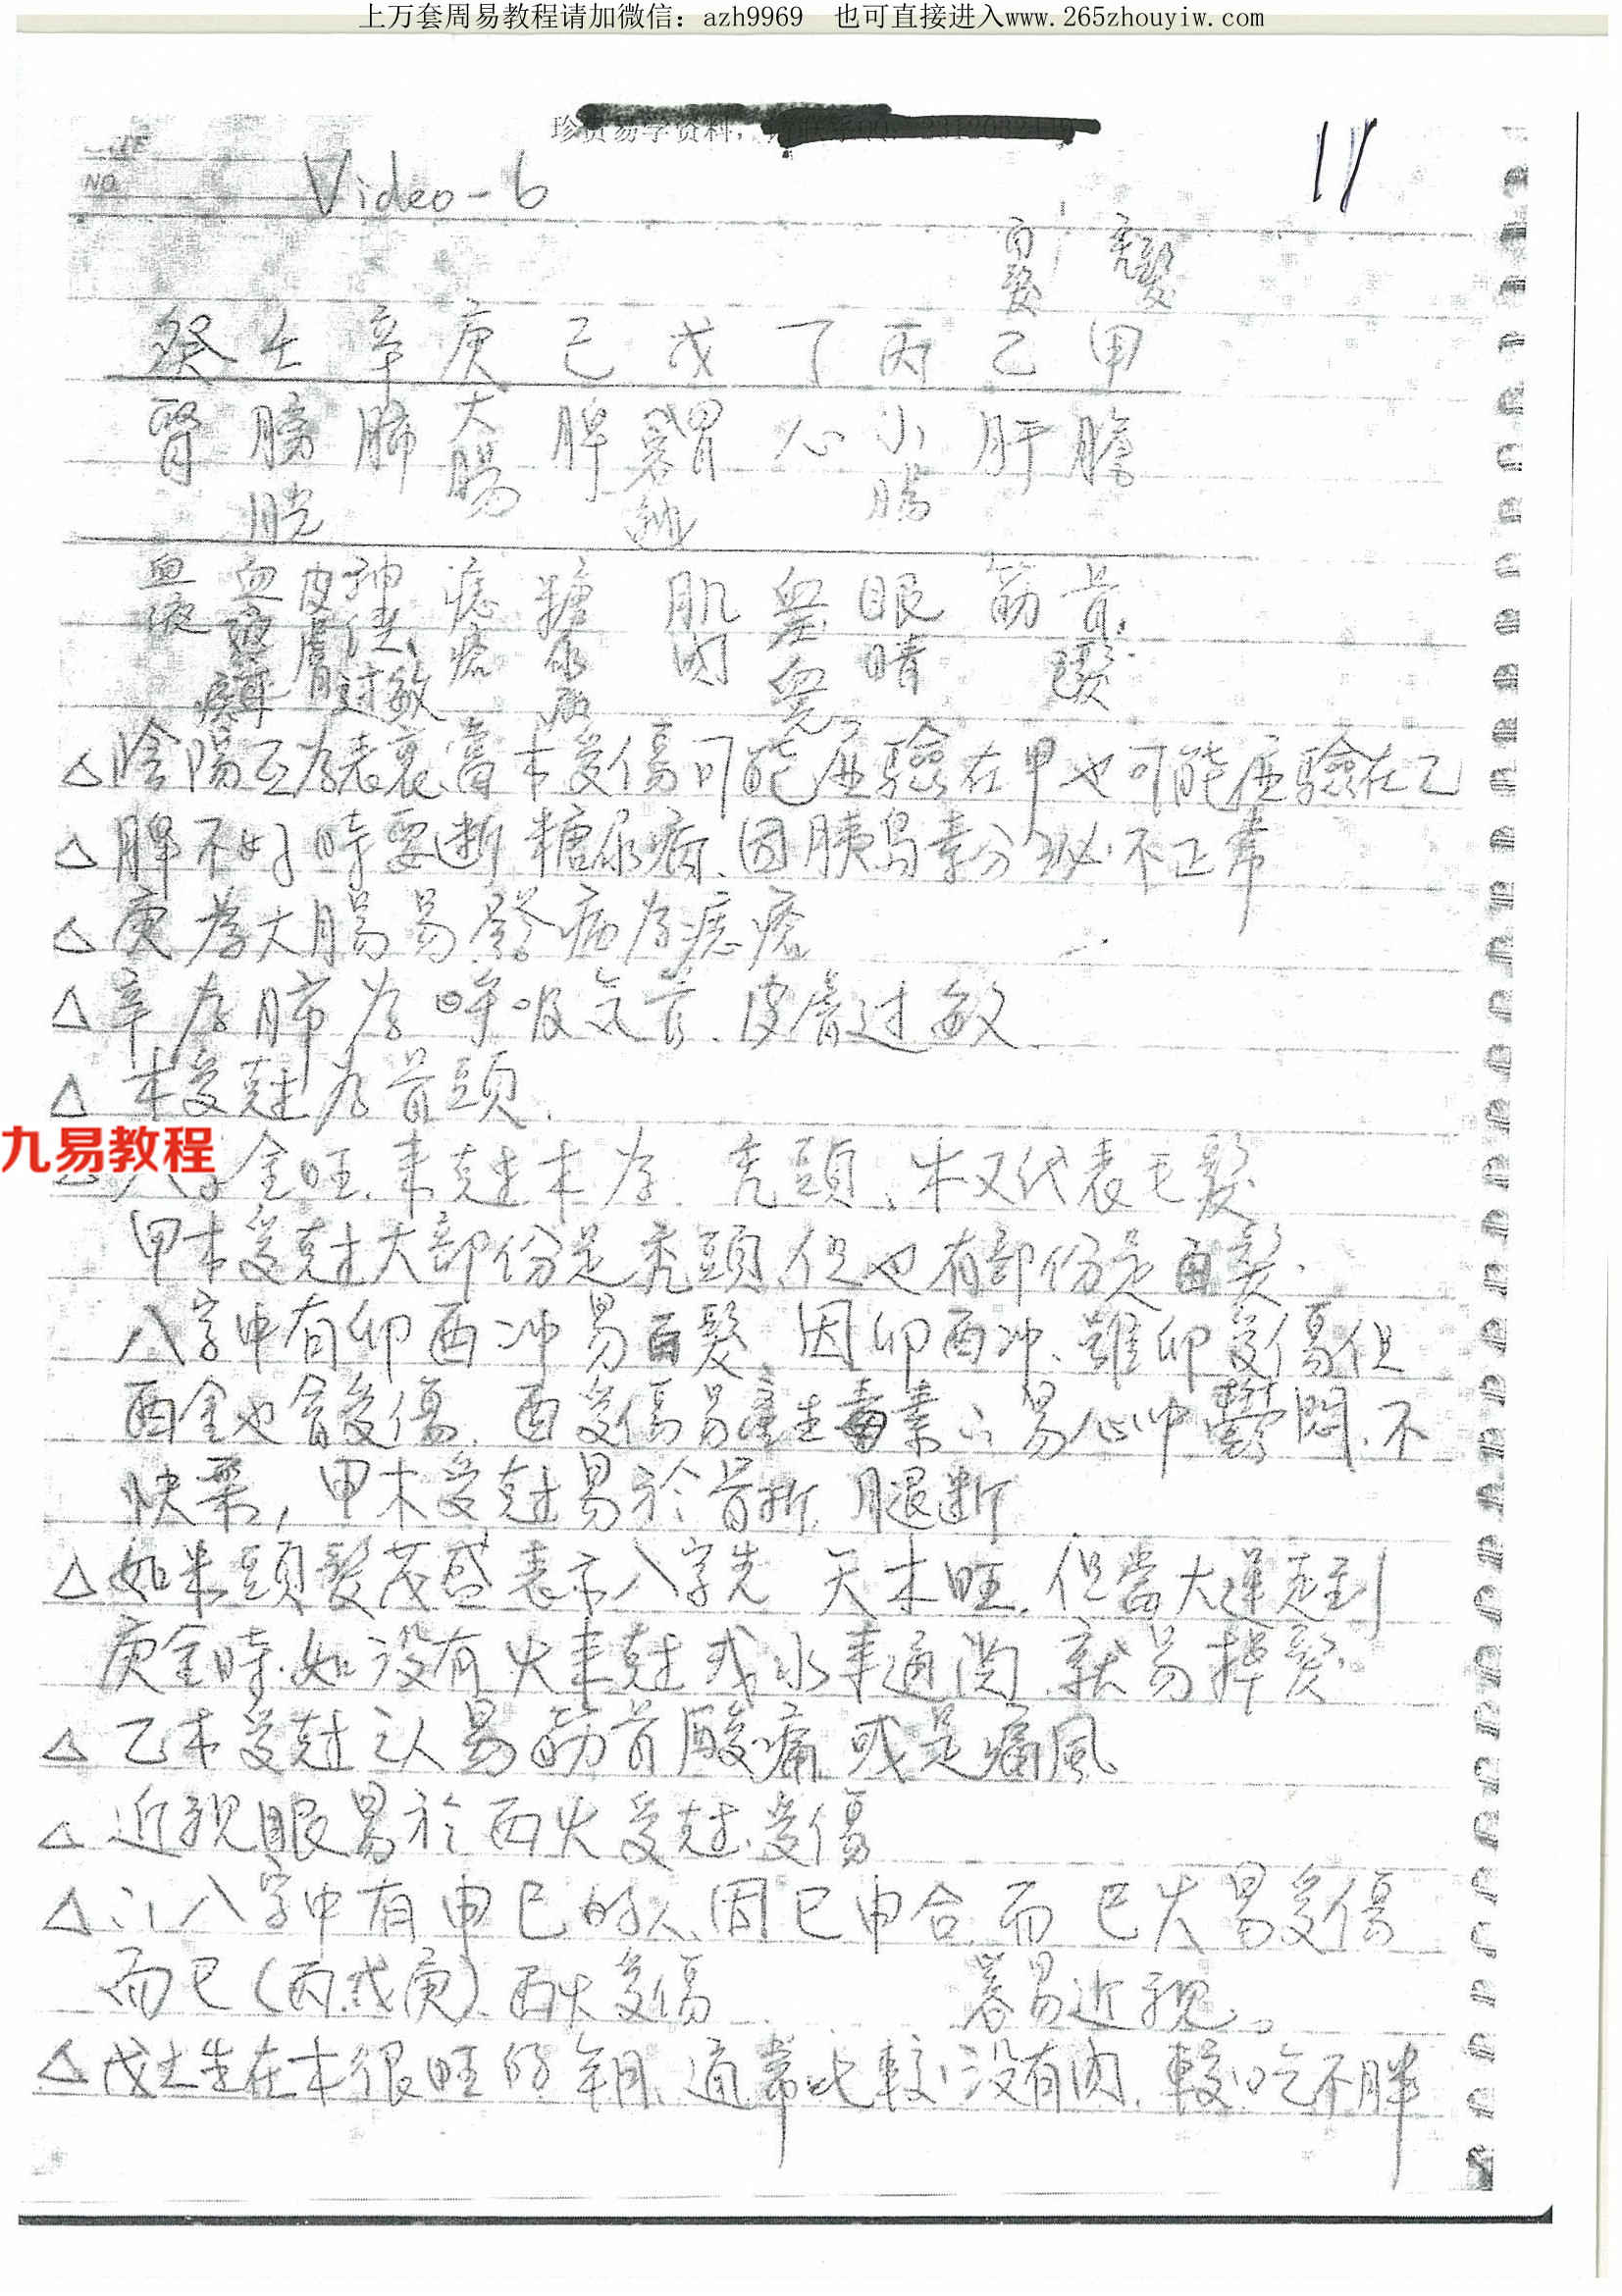 上万套周易教程请加微信：azh9969　也可直接进入www.265zhouyiw.com
珍贵易学资料，
NO.
Video-6
11
白髮 禿髮
癸 壬 辛 庚 己 戊 丁 丙 乙 甲
腎 膀胱 肺 大腸 脾 胃 心 小腸 肝 膽
血液 血液 皮膚过敏 痣瘡 糖尿病 肌肉 血 眼睛 筋 骨.
△陰陽互为表裏,當木受傷可能应驗在甲也可能应驗在乙
△脾不好時要断糖尿病.因胰島素分泌不正常
△庚為大腸易發病为痣瘡
△辛为肺为呼吸气管.皮膚过敏.
△木受尅为骨頭.
九易教程
△八字金旺.来尅木为.禿頭.木又代表毛髮
甲木受尅大部份是禿頭,但也有部份是白髮.
八字中有卯酉冲易白髮 因卯酉冲.雖卯受傷但
酉金也會受傷.酉受傷易產生毒素∴易心中鬱悶.不
快樂,甲木受尅易於骨折.腿断
△如果頭髮茂盛表示八字先天木旺.但當大運走到
庚金時.如没有火来尅或水来通関.就易掉髮.
△乙木受尅之人易筋骨酸痛.或是痛風
△近視眼易於丙火受尅.受傷
△∴八字中有申巳的人.因巳申合.而巳火易受傷
而巳(丙.戊庚).丙火受傷 容易近視。
△戊土生在木很旺的年月.通常比較没有肉.較吃不胖